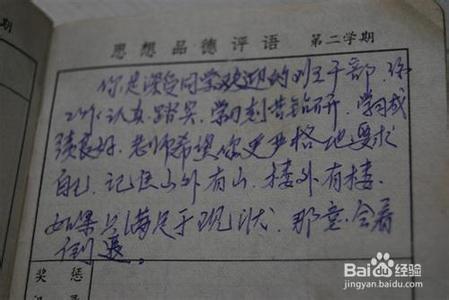 思想品德评语 第二学期
你是深受同学欢迎的
干部
认真、踏实、学习刻苦钻研、学习成
绩良好、老师希望你更严格地要求
自己、记住山外有山、楼外有楼、
如果只满足于现状、那意会看
倒退。
奖惩
Baidu经验
jingyan.baidu.com